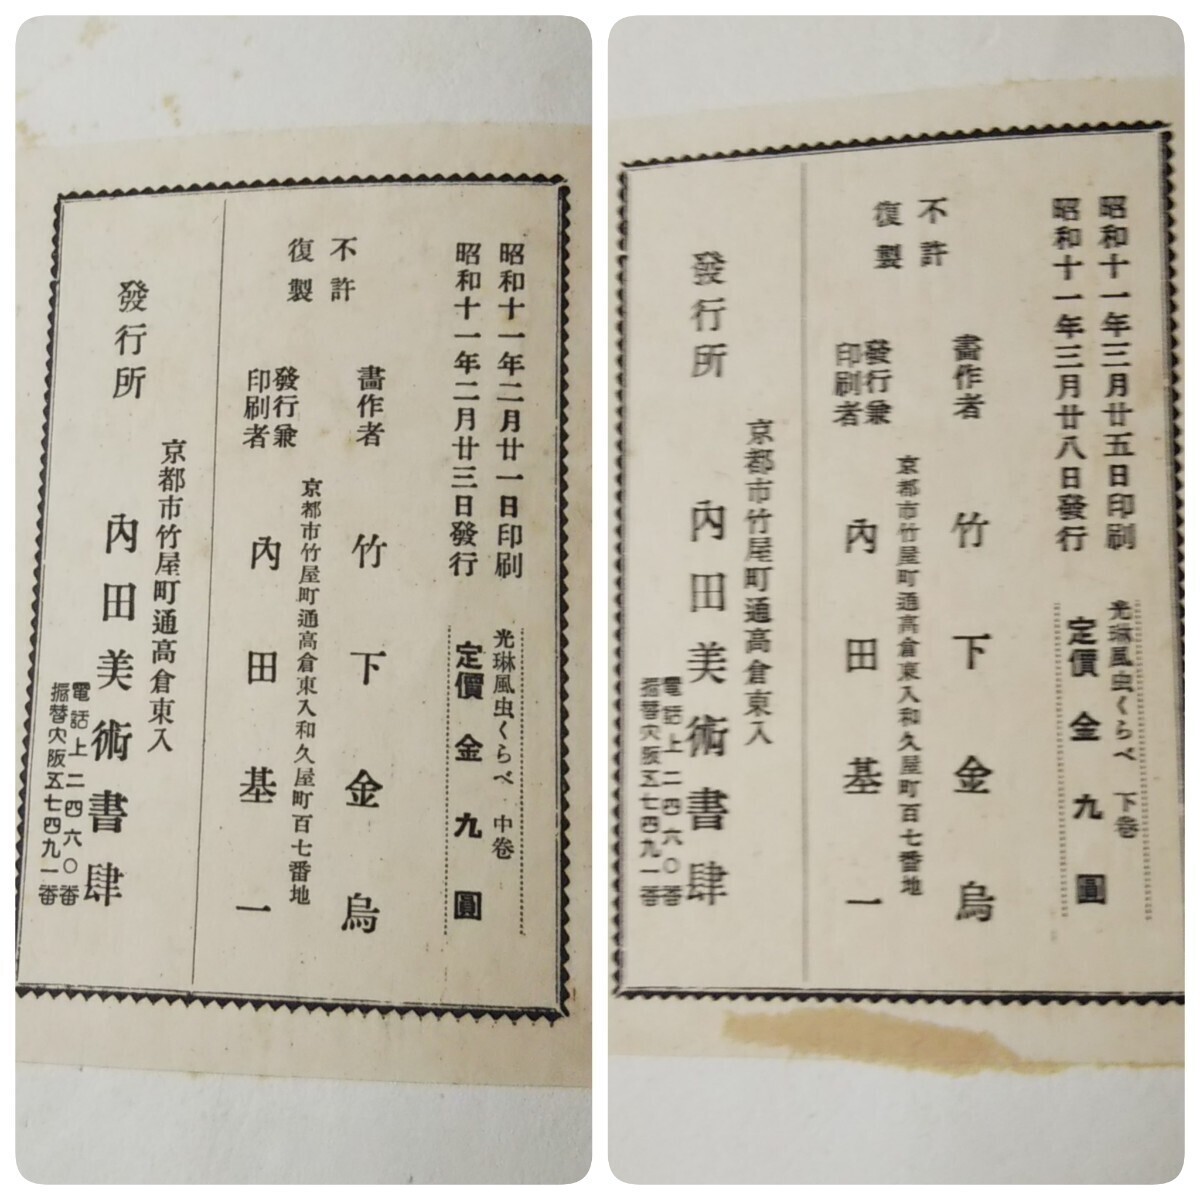 昭和十一年二月廿一日印刷
昭和十一年二月廿三日發行
光琳風虫くらべ 中巻
定價金九圓
不許
復製
畵作者 竹下金烏
京都市竹屋町通高倉東入和久屋町百七番地
發行兼
印刷者 內田基一
發行所
京都市竹屋町通高倉東入
內田美術書肆
電話上二四六〇番
振替大阪五七四九一番
昭和十一年三月廿五日印刷
昭和十一年三月廿八日發行
光琳風虫くらべ 下巻
定價金九圓
不許
復製
畵作者 竹下金烏
京都市竹屋町通高倉東入和久屋町百七番地
發行兼
印刷者 內田基一
發行所
京都市竹屋町通高倉東入
內田美術書肆
電話上二四六〇番
振替大阪五七四九一番